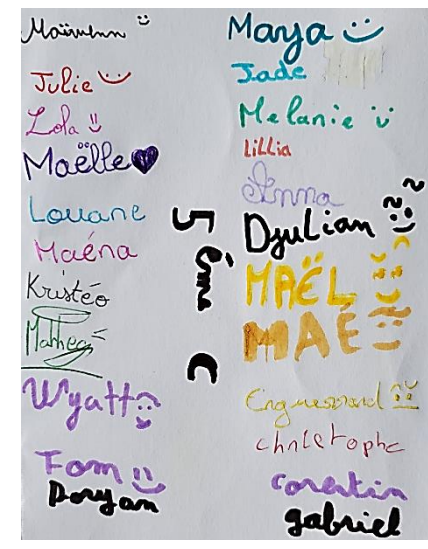 Maïwenn
Julie
Lola
Maëlle
Louane
Maéna
Kristéo
Mathéo
Wyatt
Tom
Doryan
5 ème C
Marya
Jade
Melanie
Lillia
Anna
Djulian
MAËL
MAÉ
christophe
corentin
gabriel